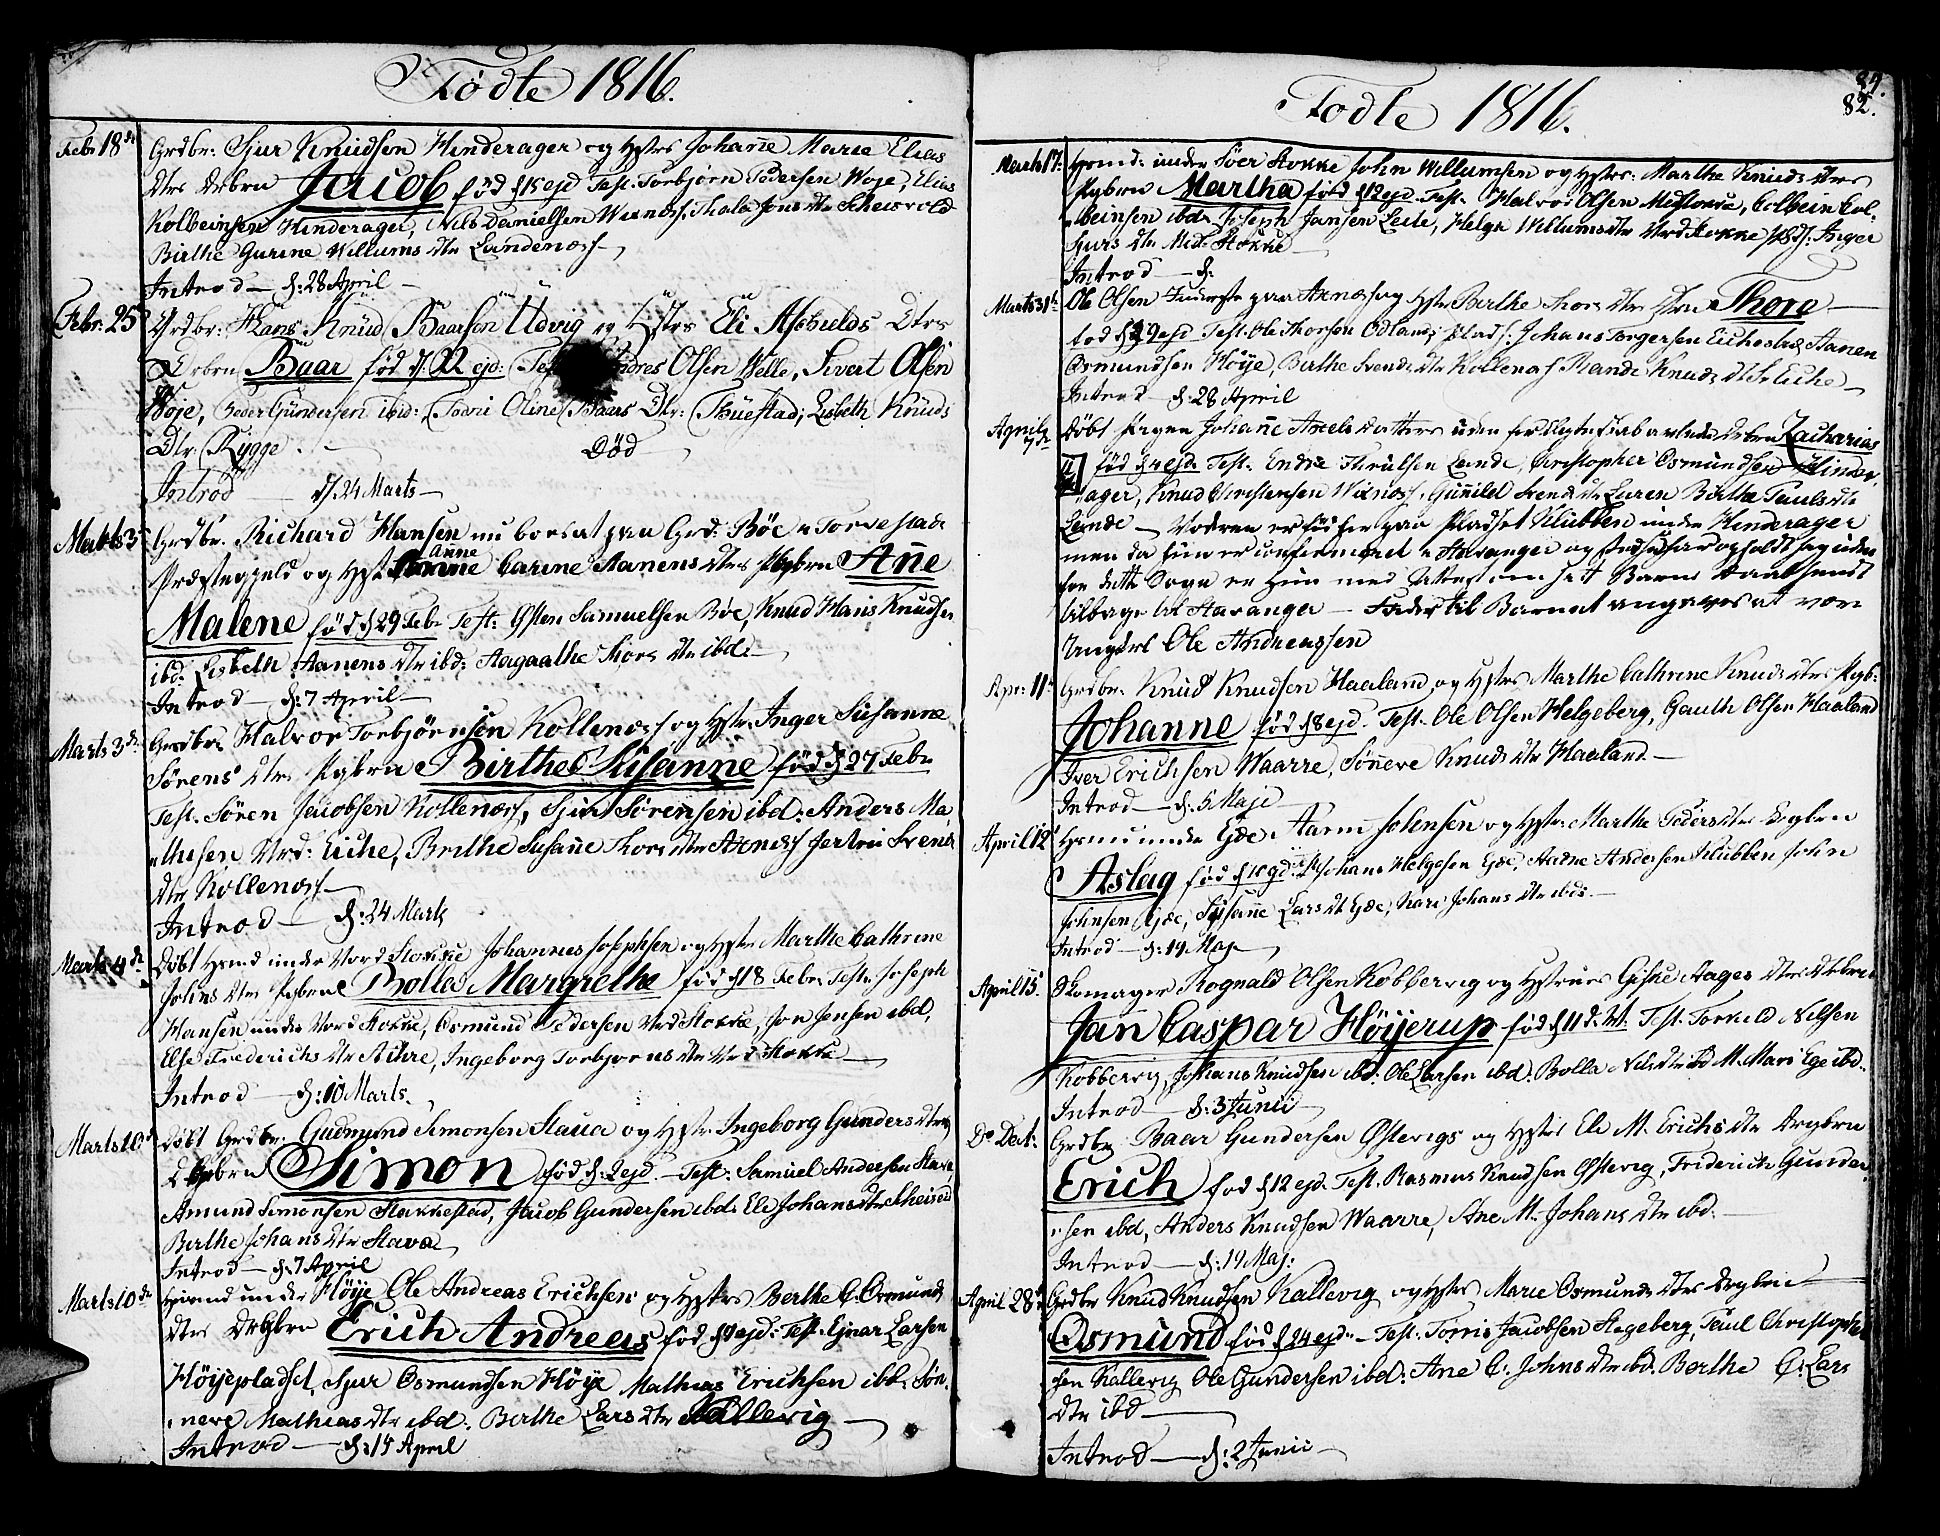 Födte 1816.
Febr 18de Grdbr: Sjur Knudsen Hinderager og Hstrs Johanne Marie Elias
Dtrs Drbrn Jacob fød d 15 ejd Test. Torbjørn Pedersen Woje, Elias
Kolbeinsen Hinderager, Nils Danielsen Thala Jons Dtr
Birthe Gurine Willums Dtr Lundenæss
Introd — d: 28 April
Febr. 25 Grdbr: Hans Knud Baarsön Udvig og Hstrs Eli Asbulds Dtrs
Drbrn Baar föd d. 22 ejd: Test Andres Olsen Welle, Sivert Olsen
Woje, Peder Gundersen ibid: Torri Oline Baars Dtr: Thuestad, Lisbeth Knuds
Dtr: Rygge. — Död
Introd — d. 24 Marts
Marts 3 Grdbr. Richard Hansen nu boesat paa Grd: Böe i Torvestads
Præstegjeld og Hst Anne Carine Aanens Dtrs Pgbrn Ane
Malene fød d 29 Febr Test: Osten Samuelsen Böe, Knud Hans Knudsen
ibd: Lisbeth Aanens Dtr ibd: Aagaathe Thors Dtr ibd:
Introd — d: 7 April
Marts 3d: Grdbr Halvor Torbjörnsön Kollenæss og Hstr: Inger Susanne
Sörens Dtrs Pgbrn Birthe Susanne fød d 27 Febr
Test. Sören Jacobsen Kollenæss, Sjur Sörensen ibd: Anders Ma
thesen Nrd: Eiche, Brithe Susane Thors Dtr Axnæss Jertru Svends
Dtr Kollenæss
Introd — d: 24 Marts
Marts 4de Döbt Hsmd under Nord Stokke Johannes Josephsen og Hstr Marthe Cathrine
Johns Dtr Pgbrn Bolle Margrethe fød d 18 Febr. Test: Joseph
Hansen under Nord Stokke, Osmund Pedersen Nrd Stokke, Jon Jensen ibd,
Else Frederichs Dtr, Ingeborg Torbjorns Dtr Nrd Stokke
Introd — d: 10 Marts.
Marts 10d Döbt Grdbr. Gudmund Simonsen Stava og Hstr Ingeborg Gunders Dtrs
Drbrn Simon fød d: 2 ejd — Test: Samuel Andersen Stava
Amund Simonsen Stakkestad, Jacob Gundersen ibd: Eli Johans Dtr
Berthe Johans Dtr Stava
Introd — d: 7 April
Marts 10de Hsmnd under Höije Ole Andreas Erichsen og Hstrs Berthe C. Osmunds
Dtrs Drgbrn Erich Andreas fød ejd: Test. Ejnar Larsen
Höijepladset, Sjur Osmundsen Höije Mathias Erichsen ibd: Sön
neve Mathias Dtr ibd: Berthe Lars Dtr Kallevig
Introd — d: 15 April
89.
82.
Fodte 1816.
Marts 17: Hsmd: under Söer Stokke John Willumsen og Hstrs: Marthe Knuds Dtrs
Pgbrn Martha fød d 12 ejd. Test. Halvor Olsen Midstokke, Colbein Col-
beinsen ibd: Joseph Jansen Leite, Helga Willums Dtr Nord Stokke Inger
Sjurs Dtr Mid: Stokke
Introd — d:
Marts 31te Ole Olsen Inderste paa Axnæs og Hstr Berthe Thors Dtr Thore
fød d 29 ejd Test. Ole Thorson Odlands plads: Johans Torgersen Aanen
Osmundsen Höije, Birthe Svends Dtr Kollenæs Rande Knuds Dtr S: Eiche
Introd — d: 28 April
April 7de Döbt Pigen Johanne Axels Datters uden for Ægteskab avlede Drbrn Zacharias
U Æ fød d 4 ejd. Test. Endre Thrulsen Lande, Christopher Osmundsen Hinder
ager, Knud Christensen Wixnæss. Gunnild Svends Dtr Luren Birthe Pauls Dtr
Lande — Moderen er föd her paa Pladset Klubben under Hinderager
men da hun er confirmeret i Stavanger og stedse har opholdt sig uden
for dette Sogn er hun med Attest om sit Barns Daab sendt
tilbage til Stavanger — Fader til Barnet angaves at være
Ungkrl Ole Andreassen
Apr: 11te Grdbr. Knud Knudsen Haaland og Hstrs Marthe Cathrine Knuds Dtrs Pgb:
Johanne fød d 8 ejd. Test. Ole Olsen Helgeberg, Gauth Olsen Haaland
Iver Erichsen Waarre, Sönneve Knuds Dtr Haaland.
Introd — d: 5 Maji
April 12 Hsmd under Gjæ: Aarm Johnsen og Hstr: Marthe Peders Dtr Drgbrn
Aslag fød d 10 ejd: T: Johans Helgesen Gjæ, Aadne Andersen Klubben, John
Johnsen Gjæ, Susane Lars Dtr Gjæ, Kari Johans Dtr ibd:
Introd — d: 19 Maji
April 15. Skomager Rognald Olsen Kobbervig og Hstrues Giske Aages Dtrs Drbrn
Jan Caspar Höijerup fød d 11 d. M. Test. Torkild Nilsen
Kobbervig, Johans Knudsen ibd: Ole Larsen ibd: Bolla Nils Dtr ibd M. Mari Ege ibd.
Introd — d: 3 Junii
Do Dat: Grdbr Baar Gundersen Östevigs og Hstrs Eli M. Erichs Dtr Drgbrn
Erich fød d 12 ejd. Test. Rasmus Knudsen Östevig, Friderich Gunder-
sen ibd, Anders Knudsen Waarre, Ane M. Johans Dtr ibd.
Introd — d: 19 Maj:
April 28de Grdbr Knud Knudsen Kallevig og Hstrs Marie Osmunds Dtrs Drgbrn
Osmund fød d 24 ejd — Test: Torris Jacobsen Stegeberg, Paul Christophe
sen Kallevig Ole Gundersen ibd: Ane C. Johns Dtr ibd. Berthe C: Lars
Dtr ibd
Introd — d: 2 Junii